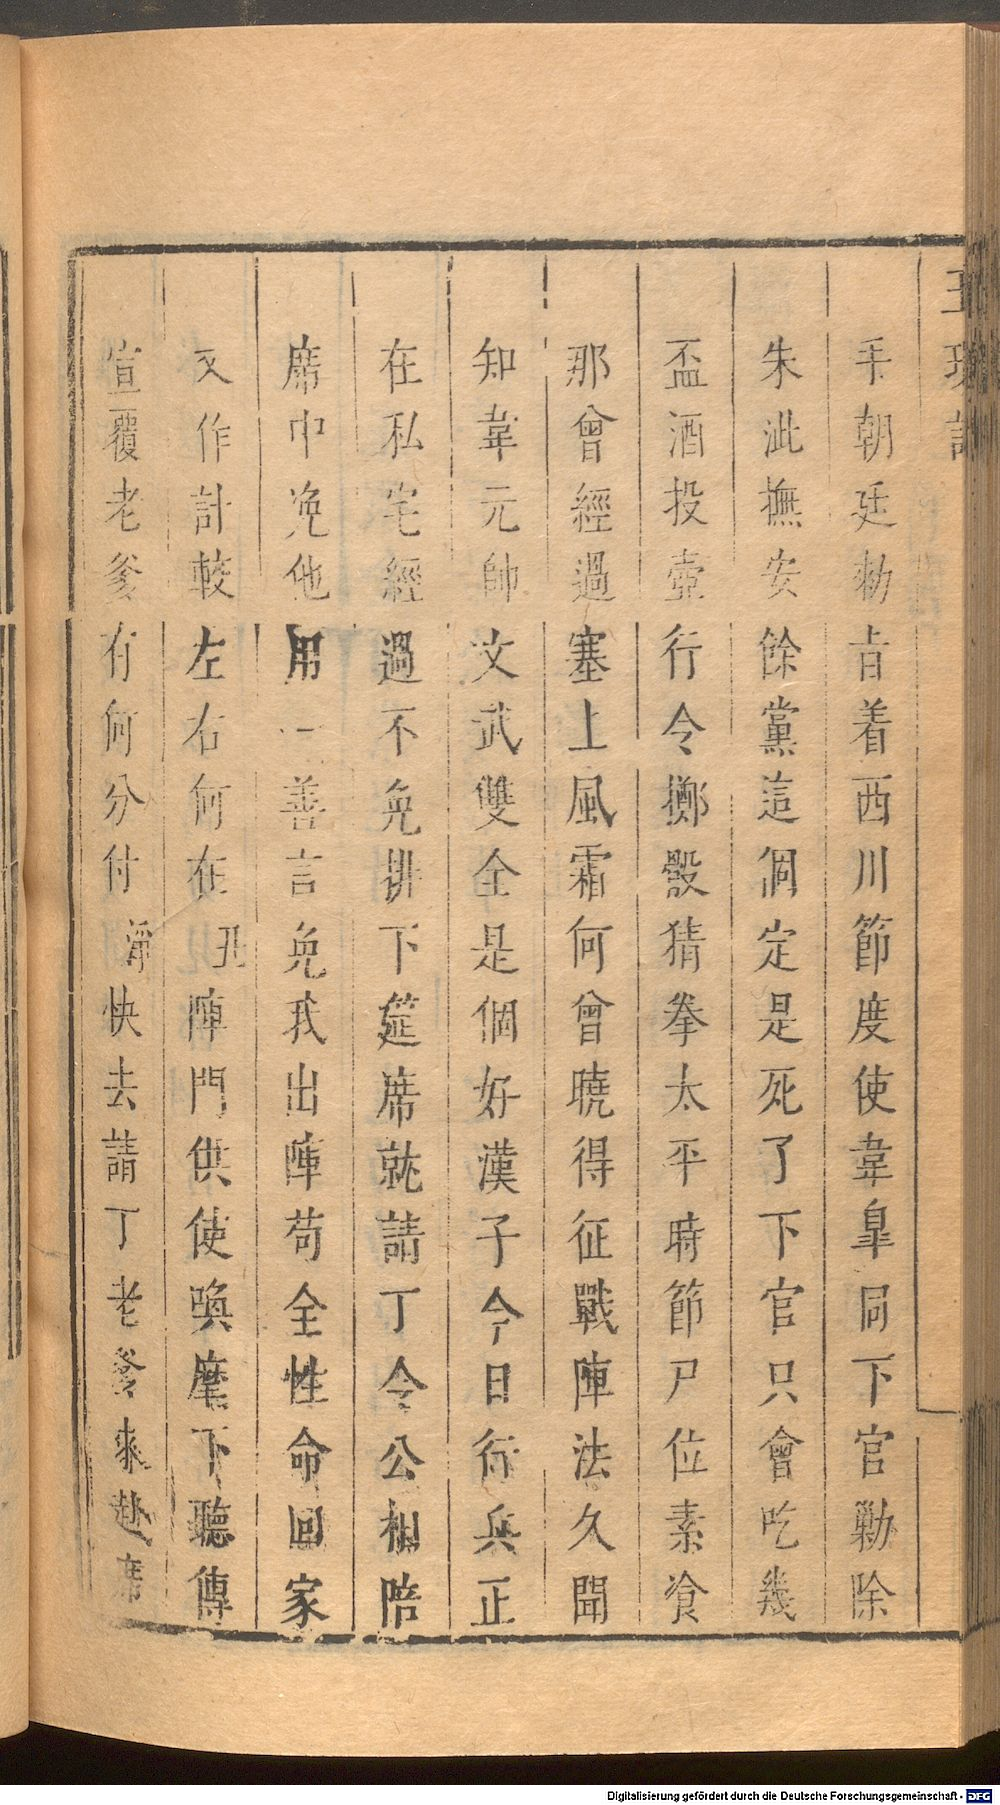 玉環記
手朝廷勑旨着西川節度使韋臯同下官勦除
朱泚撫安餘黨這個定是死了下官只會吃幾
盃酒投壺行令擲骰猜拳太平時節尸位素飡
那曾經過塞上風霜何曾曉得征戰陣法久聞
知韋元帥文武雙全是個好漢子今日行兵正
在私宅經過不免排下筵席就請丁令公相陪
席中浼他用一善言免我出陣苟全性命回家
又作計較左右何在丑陣門供使喚麾下聽傳
宣覆老爹有何分付淨快去請丁老爹來赴席
Digitalisierung gefördert durch die Deutsche Forschungsgemeinschaft - DFG